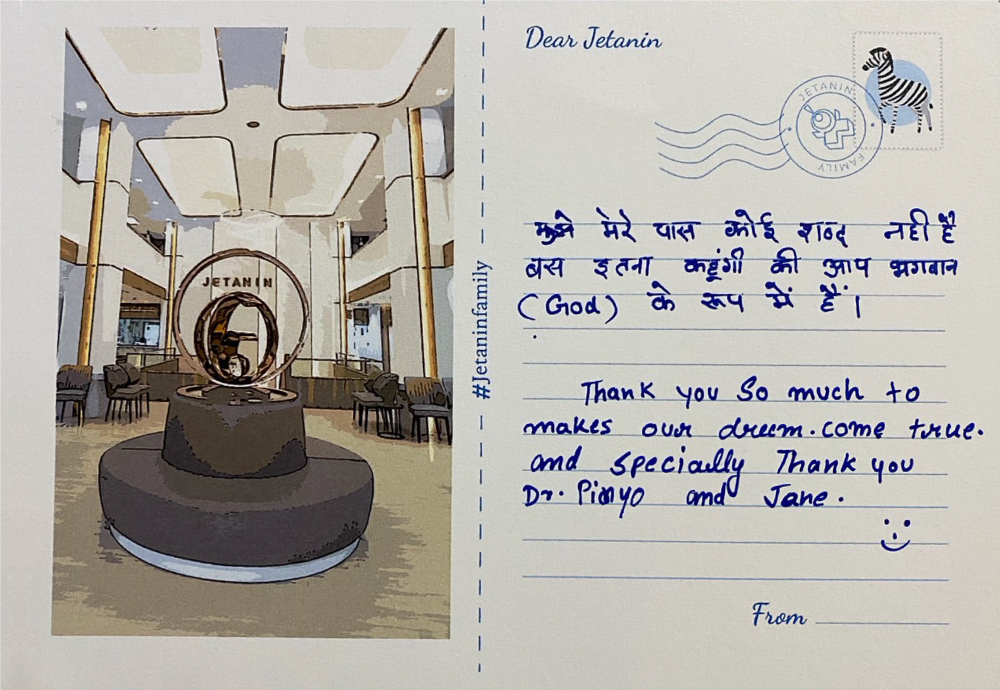 JETANIN
#Jetaninfamily
Dear Jetanin
JETANIN
FAMILY
मुझे मेरे पास कोई शब्द नहीं है
बस इतना कहूंगी की आप भगवान
(God) के रूप में हैं।
Thank you So much to
makes our dreem. come true.
and specially Thank you
Dr. Pinyo and Jane.
From